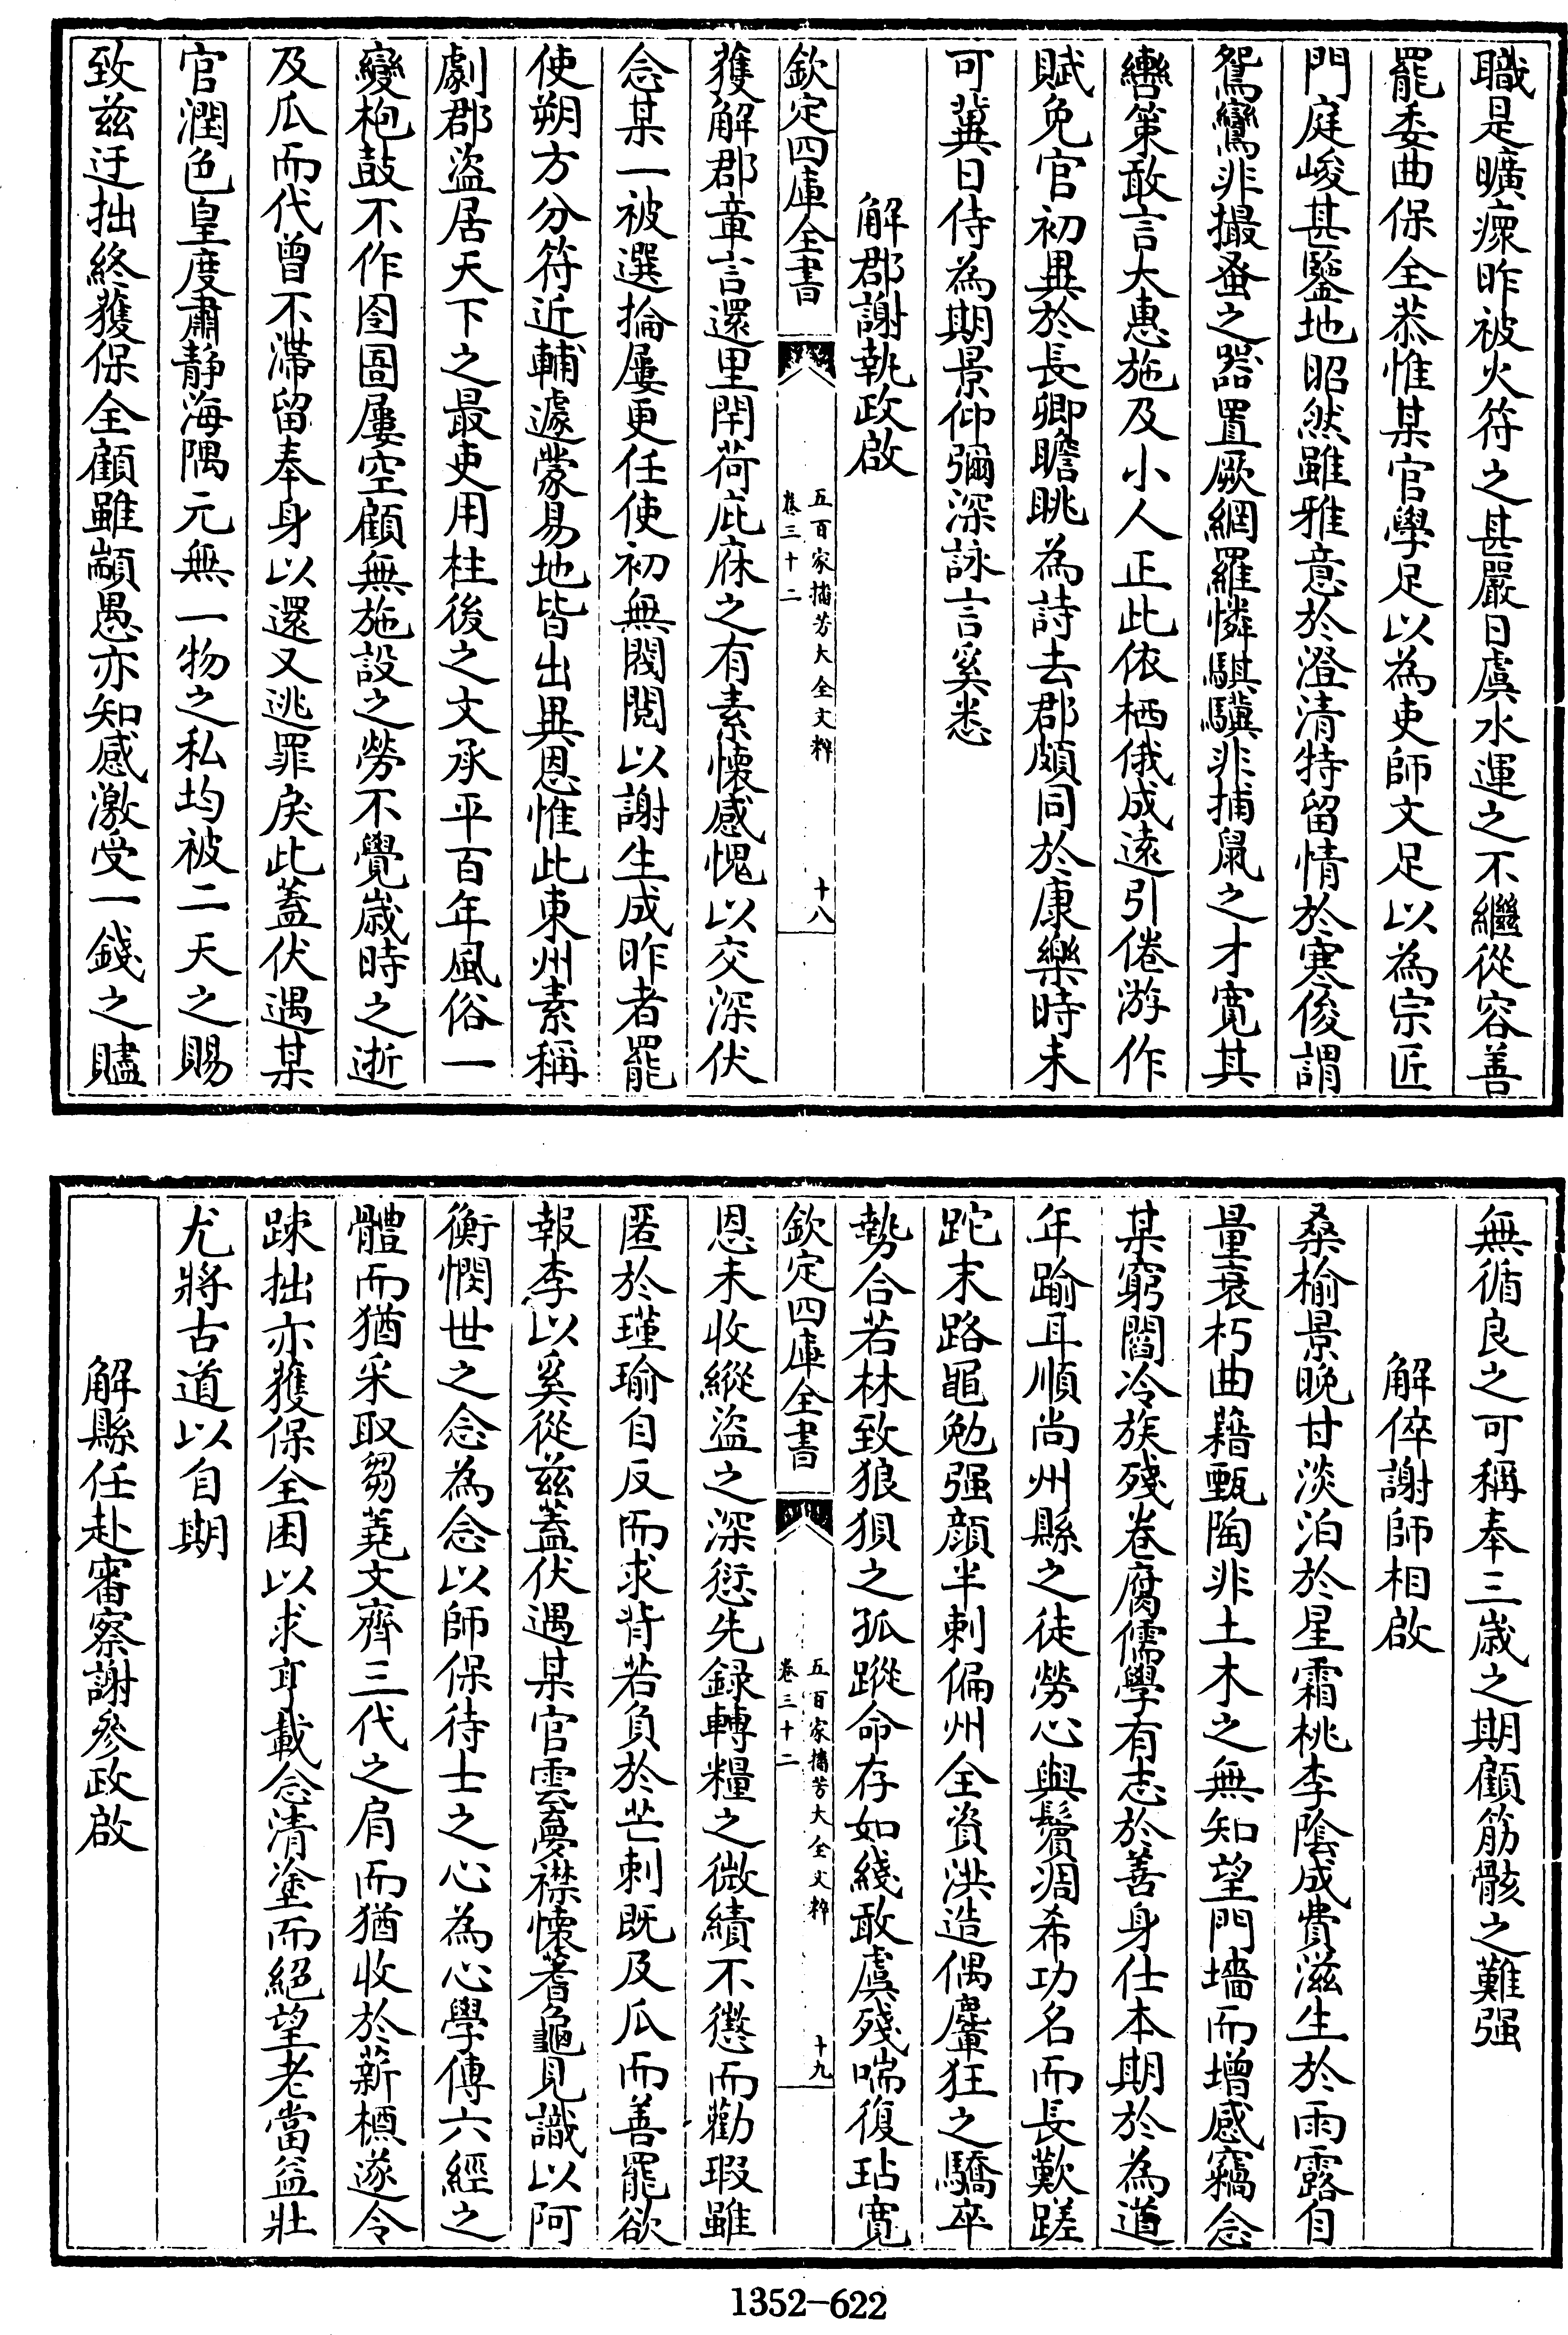 職是曠瘝昨被火符之甚嚴日虞水運之不繼從容善
罷委曲保全恭惟某官學足以為吏師文足以為宗匠
門庭峻甚鑒地昭然雖雅意於澄清特留情於寒俊謂
鴛鸞非撮蚤之器置厥網羅憐騏驥非捕鼠之才寛其
轡策敢言大惠施及小人正此依栖俄成逺引倦游作
賦免官初異於長卿瞻眺為詩去郡頗同於康樂時未
可冀日侍為期景仰彌深詠言奚悉
解郡謝執政啟
欽定四庫全書
五百家播芳大全文粹
卷三十二
十八
獲解郡章言還里閈荷庇庥之有素懷感愧以交深伏
念某一被選掄屢更任使初無閥閱以謝生成昨者罷
使朔方分符近輔遽蒙易地皆出異恩惟此東州素稱
劇郡盜居天下之最吏用柱後之文承平百年風俗一
變枹鼓不作囹圄屢空顧無施設之勞不覺歲時之逝
及瓜而代曾不滯留奉身以還又逃罪戾此蓋伏遇某
官潤色皇度肅静海隅元無一物之私均被二天之賜
致兹迂拙終獲保全顧雖顓愚亦知感激受一錢之贐
無循良之可稱奉三歲之期顧筋骸之難强
解倅謝師相啟
桑榆景晚甘淡泊於星霜桃李陰成費滋生於雨露自
量衰朽曲藉甄陶非土木之無知望門墻而增感竊念
某窮閻冷族殘卷腐儒學有志於善身仕本期於為道
年踰耳順尚州縣之徒勞心與鬢凋希功名而長歎蹉
跎末路黽勉强顔半刺偏州全資洪造偶麾狂之驕卒
勢合若林致狼狽之孤蹤命存如綫敢虞殘喘復玷寛
欽定四庫全書
五百家播芳大全文粹
卷三十二
十九
恩未收縱盜之深愆先録轉糧之微績不懲而勸瑕雖
匿於瑾瑜自反而求背若負於芒刺既及瓜而善罷欲
報李以奚從兹蓋伏遇某官雲夢襟懷蓍龜見識以阿
衡憫世之念為念以師保待士之心為心學傳六經之
體而猶采取芻蕘文齊三代之肩而猶收於薪槱遂令
踈拙亦獲保全困以求亨載念清塗而絕望老當益壯
尤將古道以自期
解縣任赴審察謝參政啟
1352-622